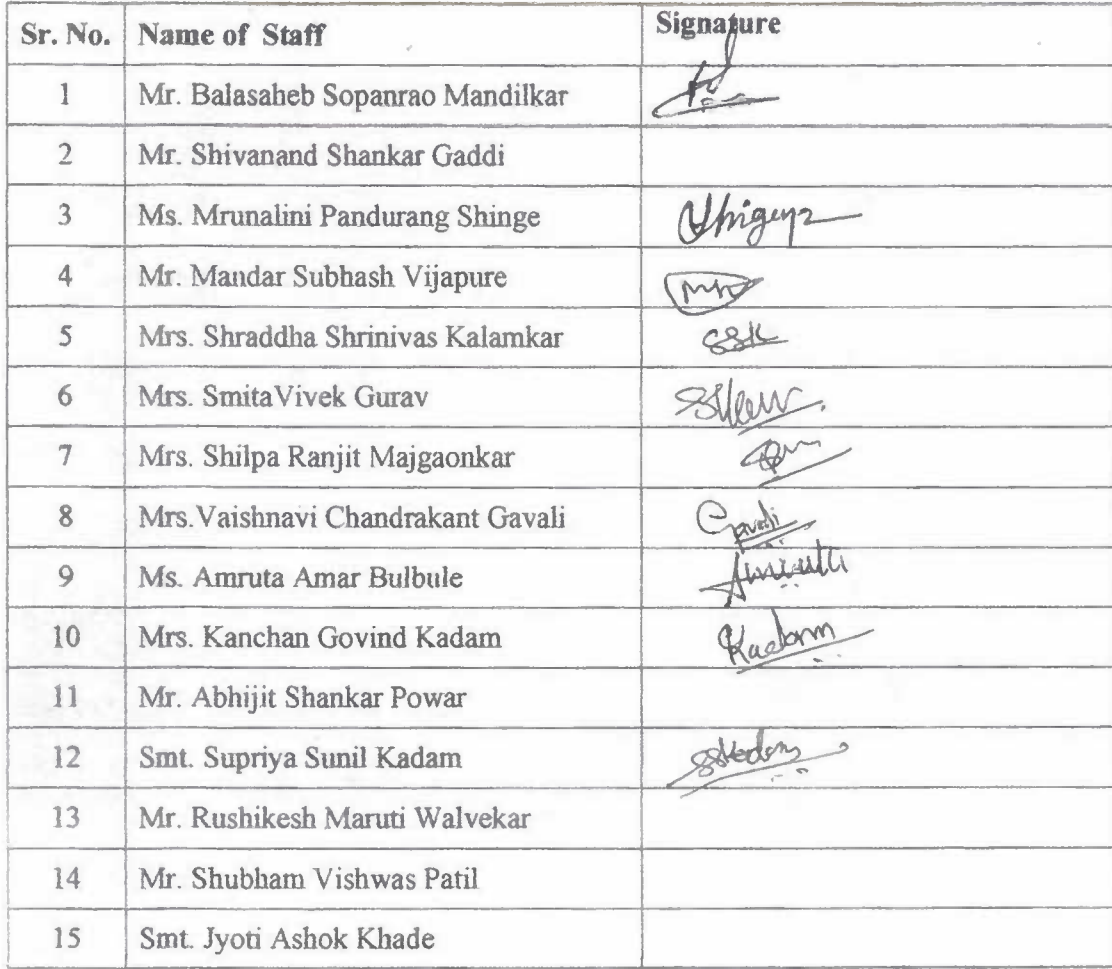 Sr. No. Name of Staff Signature
1 Mr. Balasaheb Sopanrao Mandilkar
2 Mr. Shivanand Shankar Gaddi
3 Ms. Mrunalini Pandurang Shinge
4 Mr. Mandar Subhash Vijapure
5 Mrs. Shraddha Shrinivas Kalamkar SSK
6 Mrs. SmitaVivek Gurav
7 Mrs. Shilpa Ranjit Majgaonkar
8 Mrs.Vaishnavi Chandrakant Gavali Gavali
9 Ms. Amruta Amar Bulbule
10 Mrs. Kanchan Govind Kadam Kadam
11 Mr. Abhijit Shankar Powar
12 Smt. Supriya Sunil Kadam SSKadam
13 Mr. Rushikesh Maruti Walvekar
14 Mr. Shubham Vishwas Patil
15 Smt. Jyoti Ashok Khade